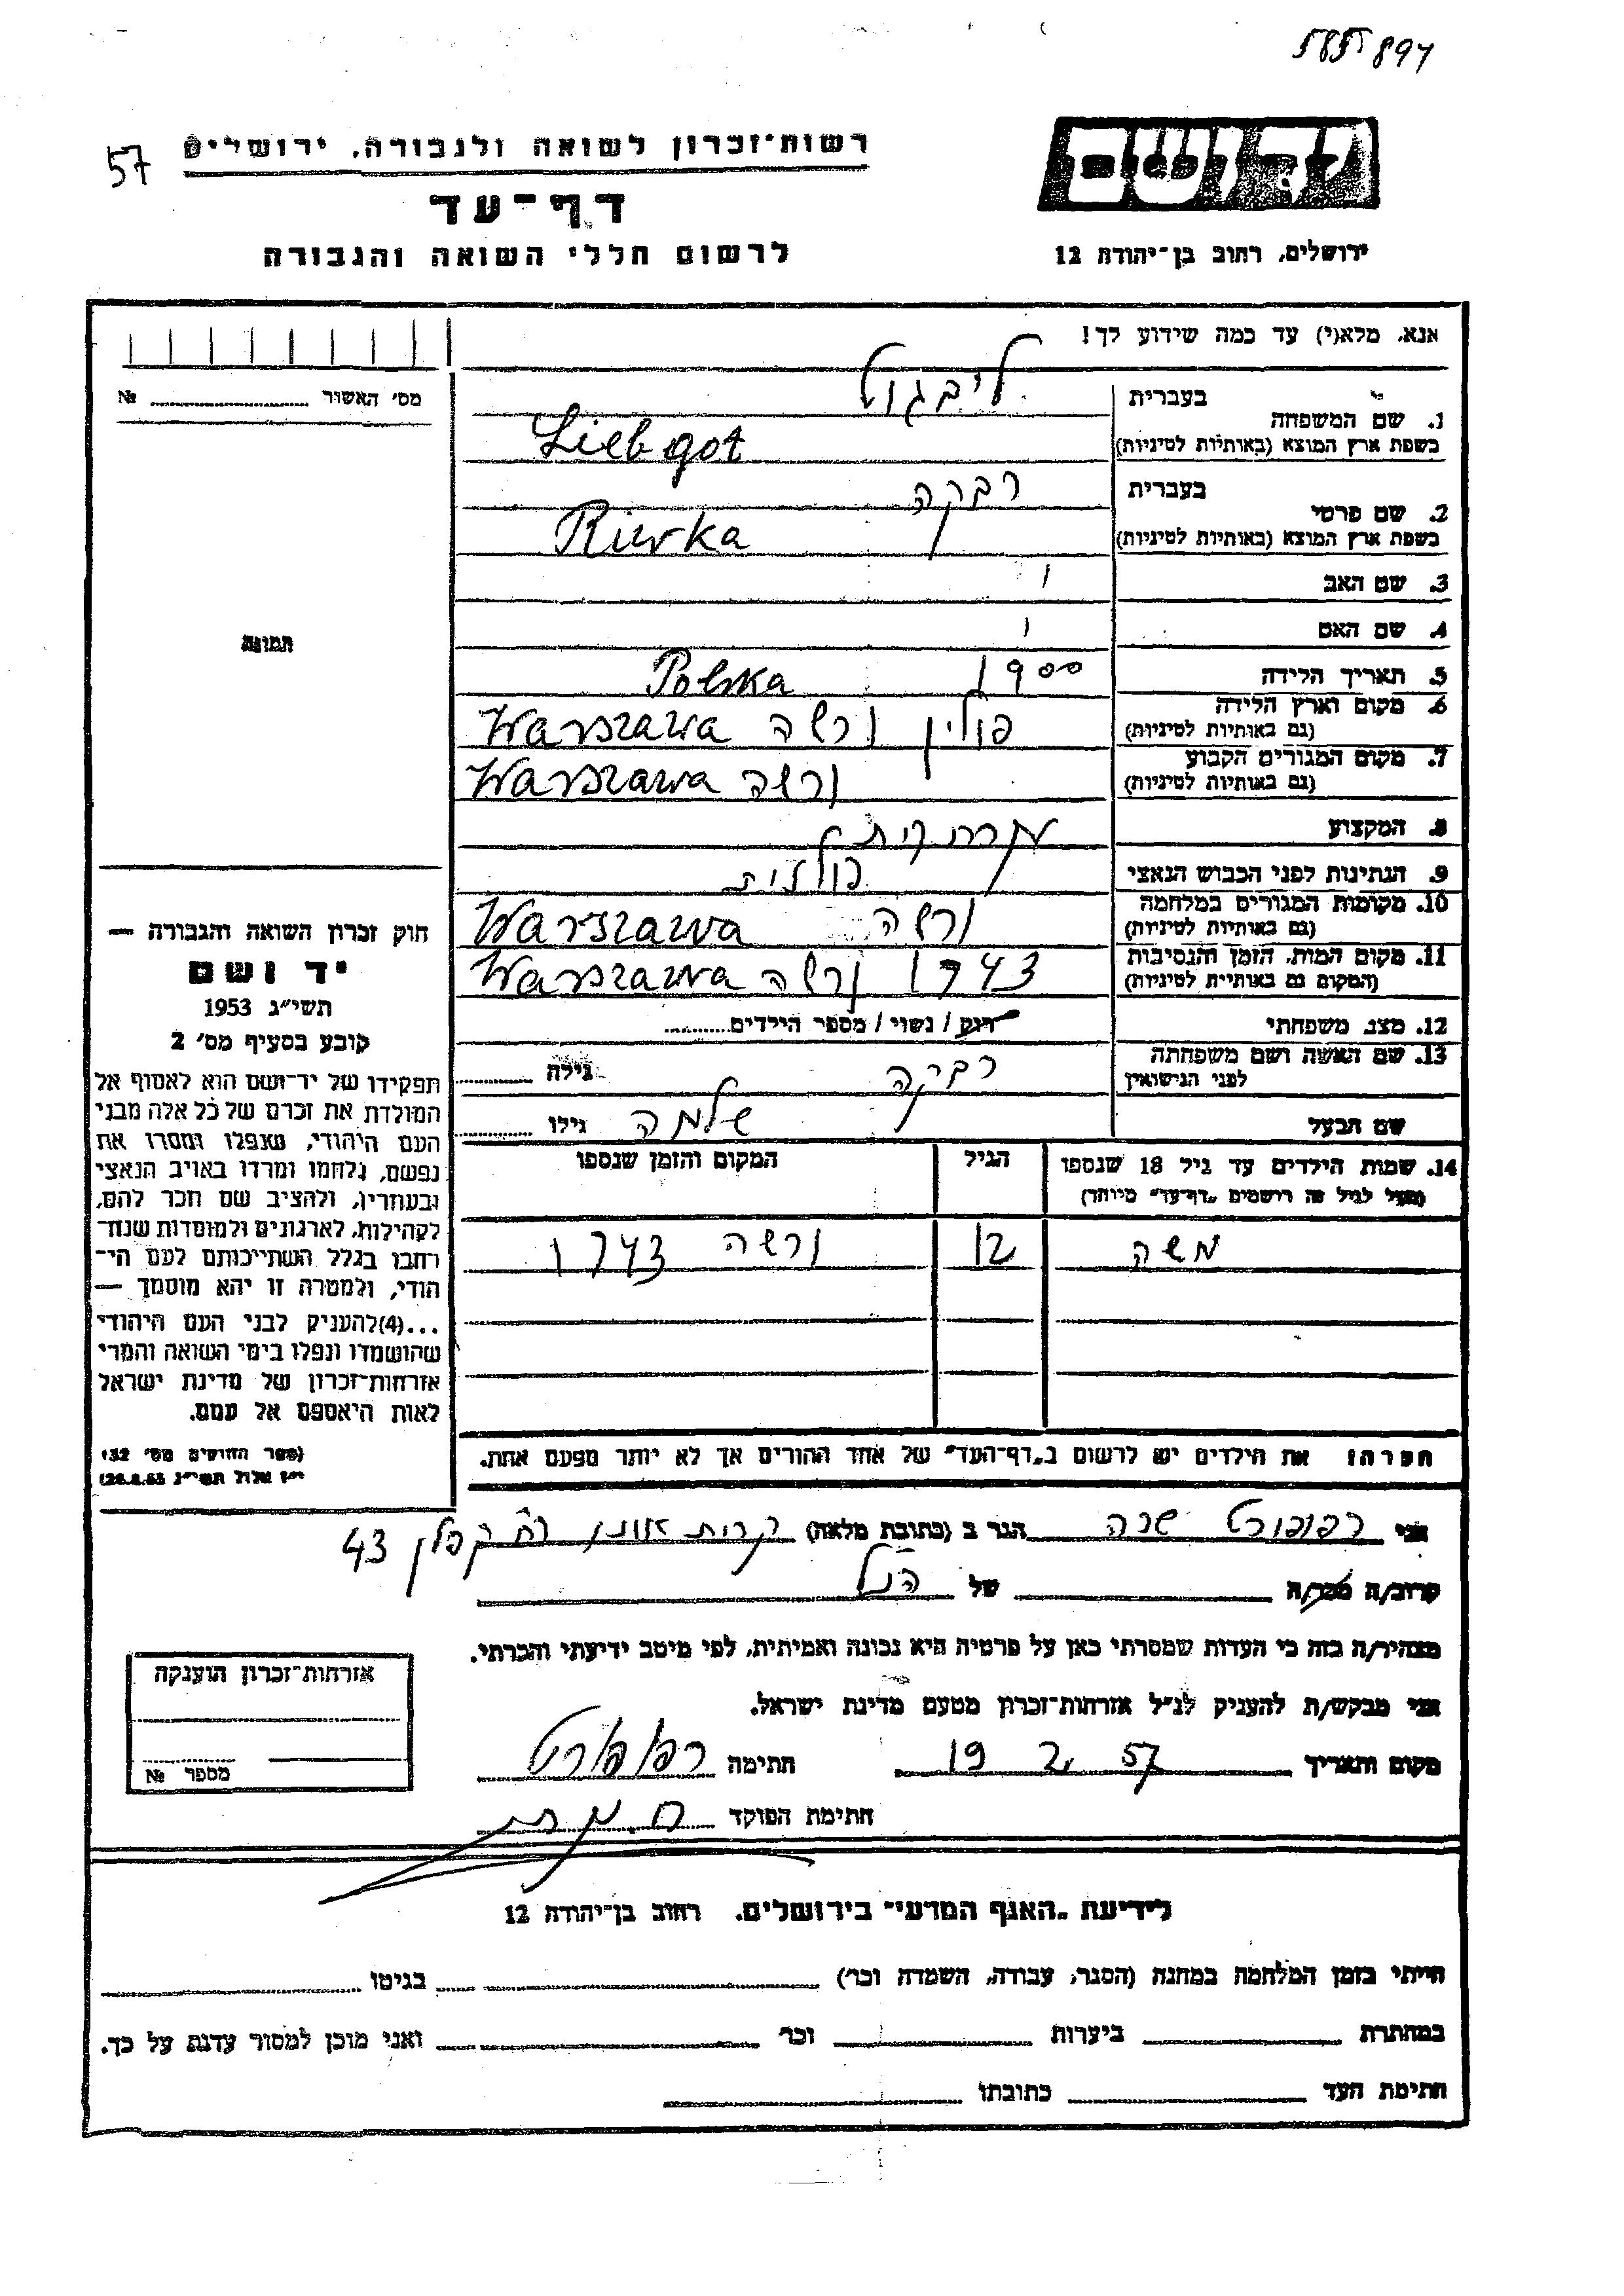 585894
57
רשות־זכרון לשואה ולגבורה, ירושלים
יד ושם
דף־עד
לרשום חללי השואה והגבורה
ירושלים, רחוב בן־יהודה 12
אנא, מלא(י) עד כמה שידוע לך!
מס' האשור № 
תמונה
1. שם המשפחה בעברית ליבגוט
בשפת ארץ המוצא (באותיות לטיניות) Liebgot
2. שם פרטי בעברית רבקה
בשפת ארץ המוצא (באותיות לטיניות) Riwka
3. שם האב
4. שם האם
5. תאריך הלידה 1900 Polska
6. מקום וארץ הלידה
(גם באותיות לטיניות) פולין ורשה Warszawa
7. מקום המגורים הקבוע
(גם באותיות לטיניות) ורשה Warszawa
8. המקצוע
9. הנתינות לפני הכבוש הנאצי פולנית
10. מקומות המגורים במלחמה
(גם באותיות לטיניות) ורשה Warszawa
11. מקום המות, הזמן והנסיבות
(המקום גם באותיית לטיניות) 1943 ורשה Warszawa
12. מצב משפחתי רוק / נשוי / מספר הילדים
13. שם האשה ושם משפחתה
לפני הנישואין רבקה גילה
שם הבעל שלמה גילו
14. שמות הילדים עד גיל 18 שנספו הגיל המקום והזמן שנספו
(מעל לגיל זה רושמים „דף־עד" מיוחד)
משה 12 ורשה 1943
הערה: את הילדים יש לרשום ב„דף־העד" של אחד ההורים אך לא יותר מפעם אחת.
חוק זכרון השואה והגבורה —
יד ושם
תשי״ג 1953
קובע בסעיף מס' 2
תפקידו של יד־ושם הוא לאסוף אל
המולדת את זכרם של כל אלה מבני
העם היהודי, שנפלו ומסרו את
נפשם, נלחמו ומרדו באויב הנאצי
ובעוזריו, ולהציב שם וזכר להם,
לקהילות, לארגונים ולמוסדות שנח־
רבו בגלל השתייכותם לעם הי־
הודי, ולמטרה זו יהא מוסמך —
...(4)להעניק לבני העם היהודי
שהושמדו ונפלו בימי השואה והמרי
אזרחות־זכרון של מדינת ישראל
לאות היאספם אל עמם.
(ספר החוקים מס' 132
י״ז אלול תשי״ג 28.8.53)
אני רפופורט שרה הגר ב (כתובת מלאה) קרית אונו רח קפלן 43
קרוב/ה מכר/ה של הנ"ל
מצהיר/ה בזה כי העדות שמסרתי כאן על פרטיה היא נכונה ואמיתית, לפי מיטב ידיעתי והכרתי.
אני מבקש/ת להעניק לנ״ל אזרחות־זכרון מטעם מדינת ישראל.
מקום ותאריך 19 2 57 חתימה רפופורט
חתימת הפוקד
אזרחות־זכרון הוענקה
מספר №
לידיעת „האגף המדעי" בירושלים, רחוב בן־יהודה 12
הייתי בזמן המלחמה במחנה (הסגר, עבודה, השמדה וכו') בגיטו
במחתרת ביערות וכו' ואני מוכן למסור עדות על כך.
חתימת העד כתובתו